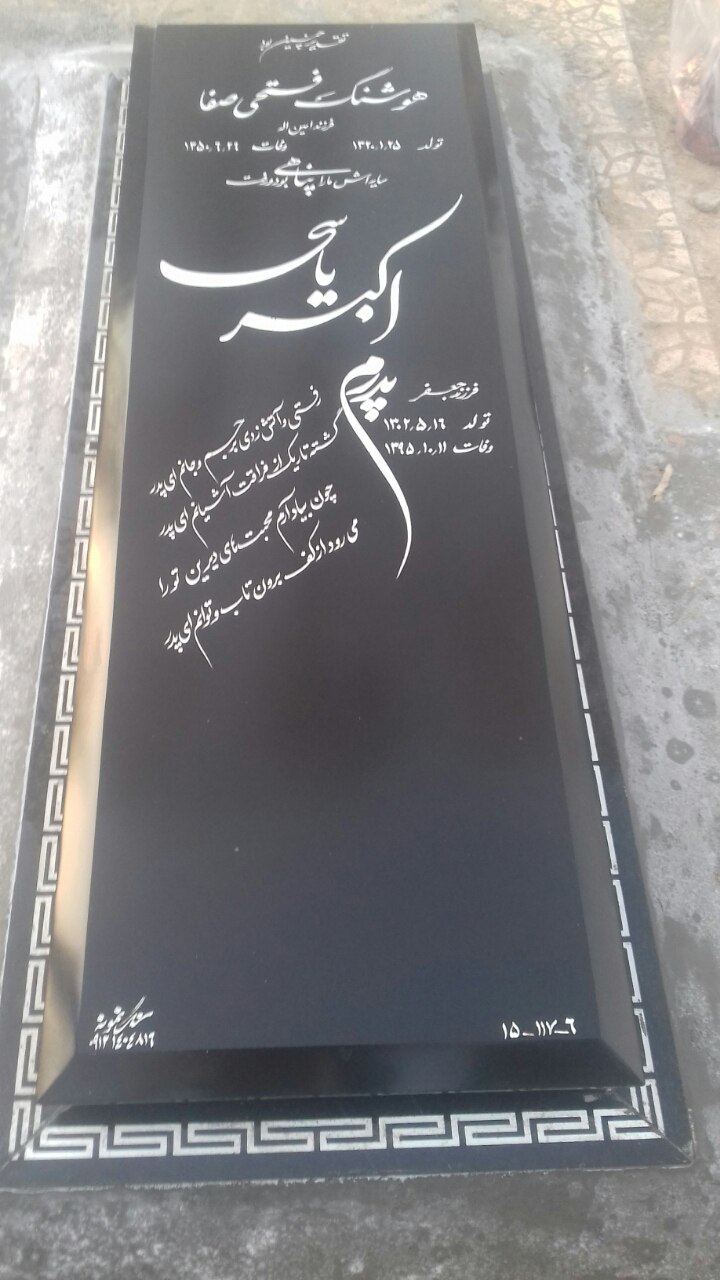 تقدیر چنین بود
هوشنگ فتحی صفا
فرزند امین اله
تولد ۱۳۲۰.۱.۲۵ وفات ۱۳۵۰.۶.۲۹
سایه اش ما را پناهی بود و رفت
اکبر یاسمی
پدرم
فرزند جعفر
تولد ۱۳۰۲.۵.۱۶
وفات ۱۳۹۵.۱۰.۱۱
رفتی و آتش زدی بر جسم و جانم ای پدر
گشته تاریک از فراقت آشیانم ای پدر
چون بیاد آرم محبتهای دیرین تو را
می رود از کف برون تاب و توانم ای پدر
سنگ نمونه
۰۹۱۲ ۱۴۰۴۸۱۶
۱۵-۱۱۷-۶